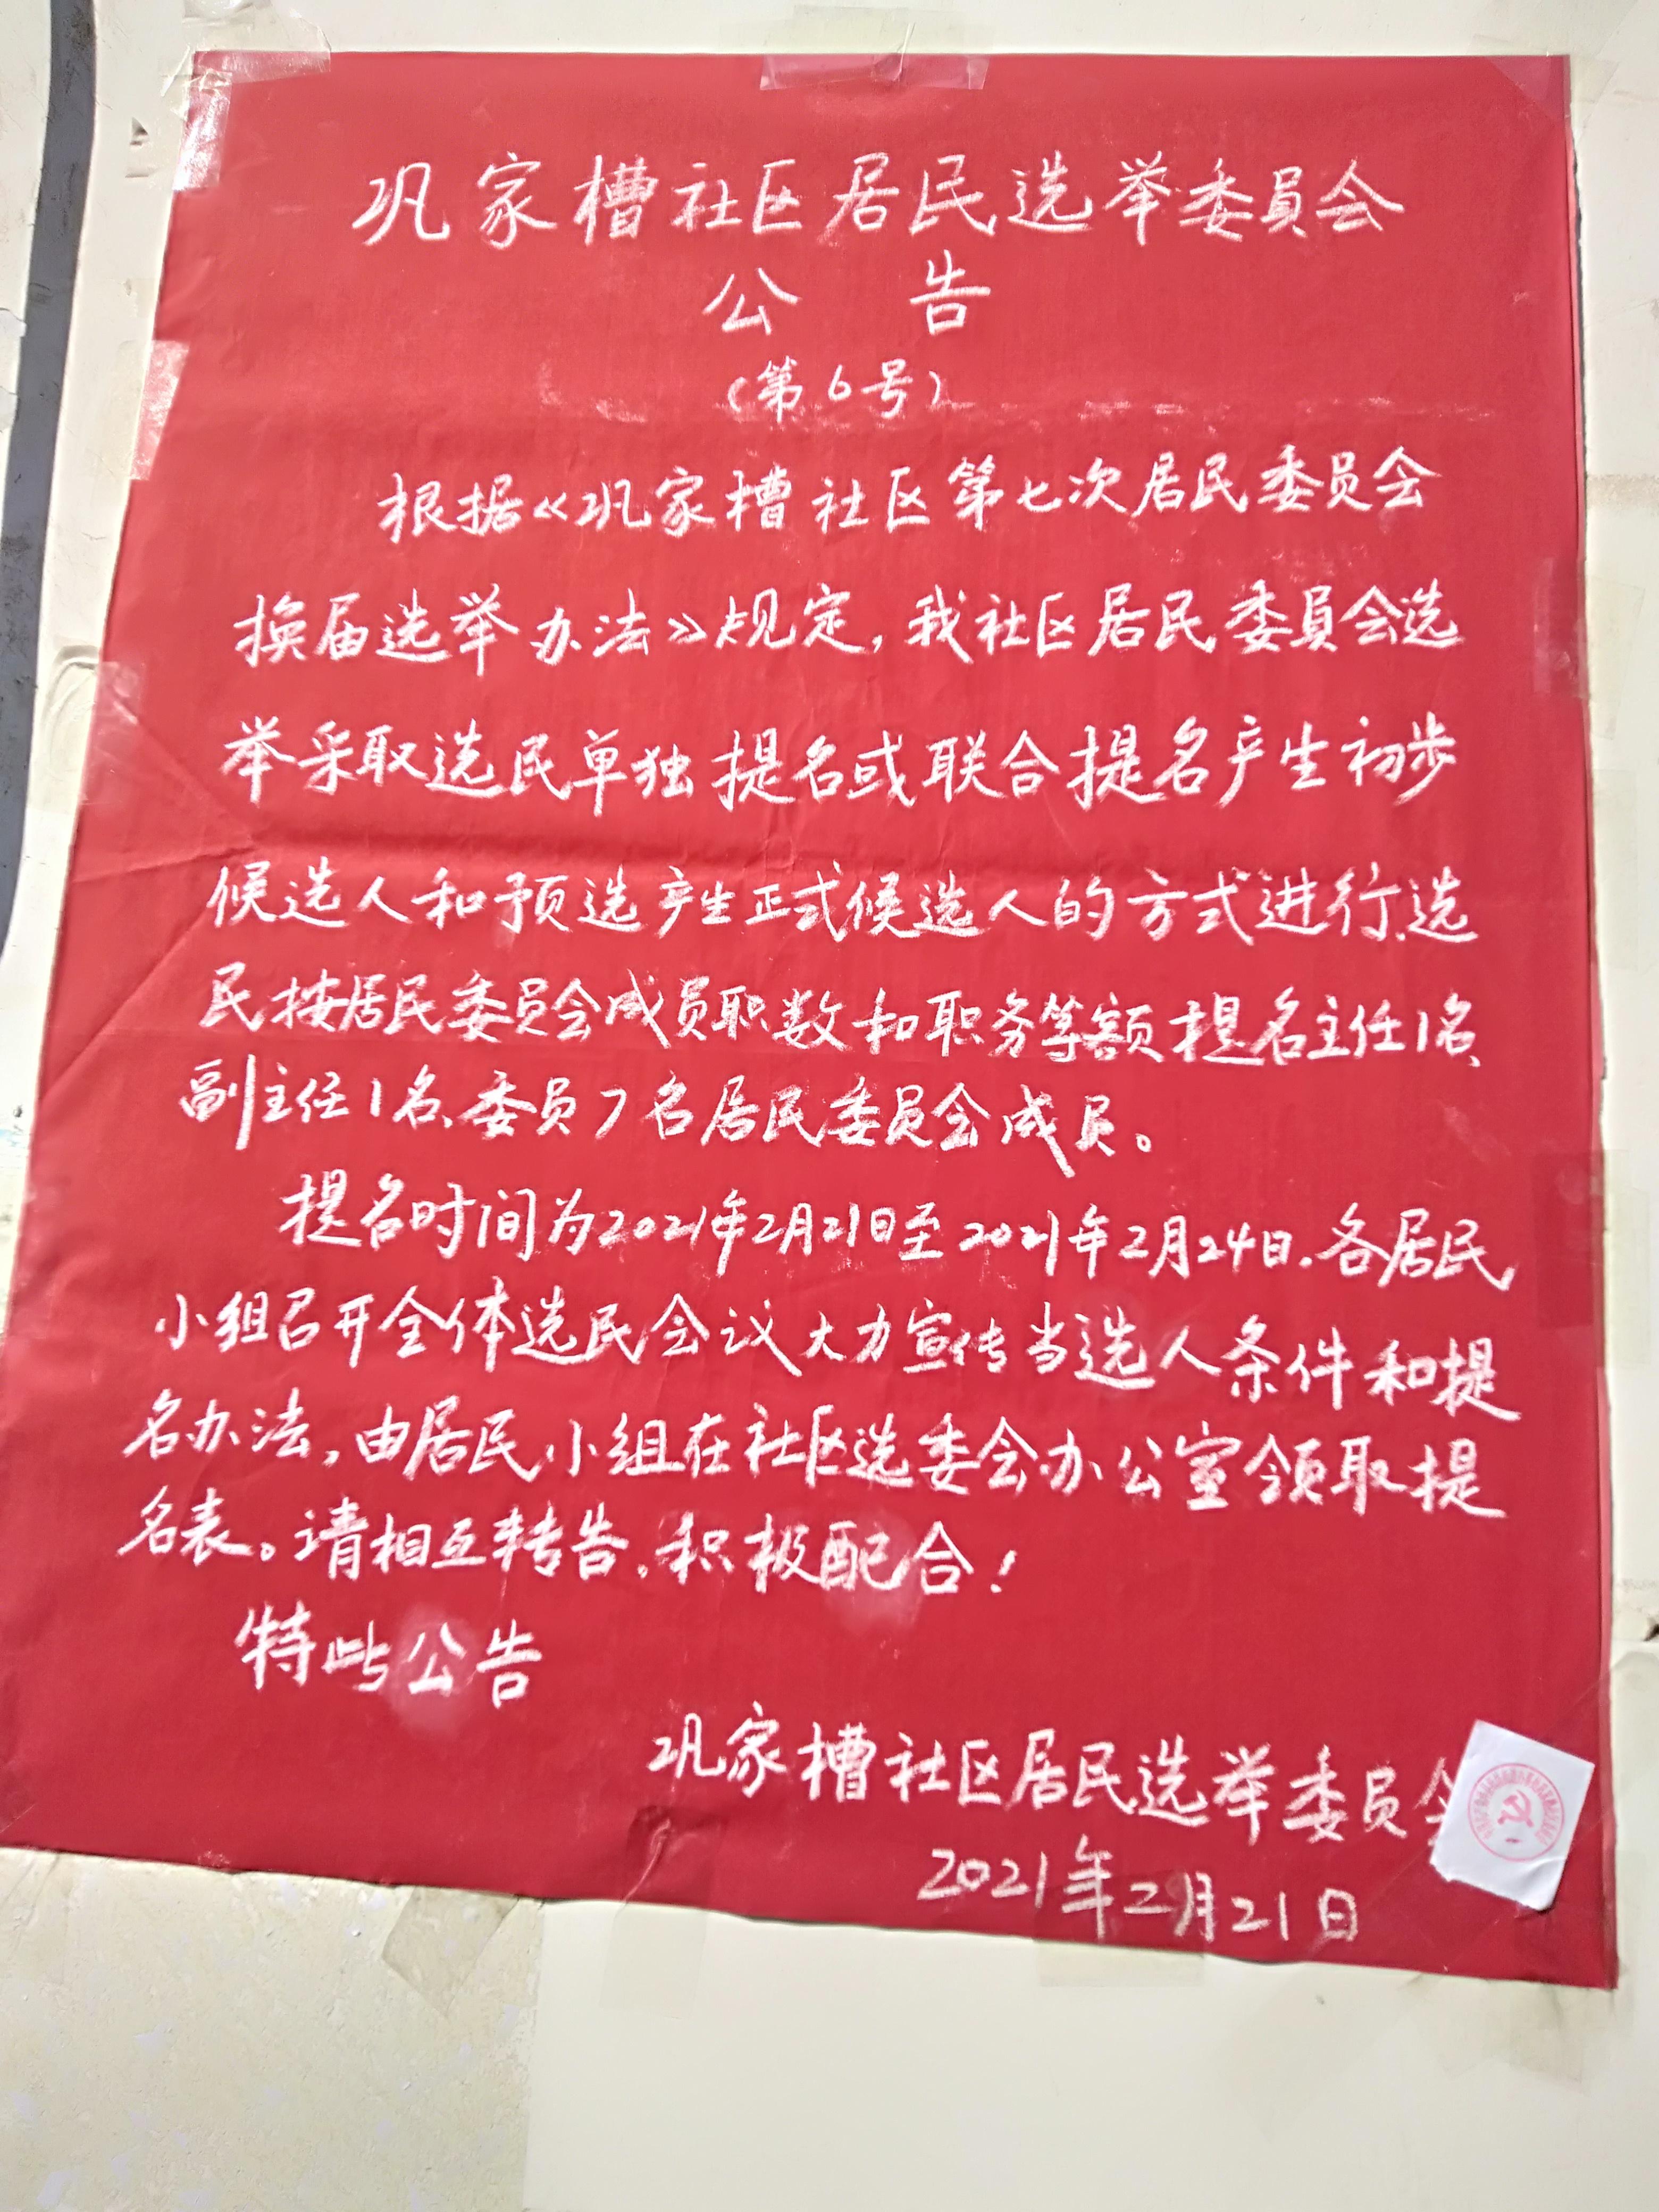 巩家槽社区居民选举委員会
公告
(第6号)
根据《巩家槽社区第七次居民委员会
换届选举办法》规定,我社区居民委員会选
举采取选民单独提名或联合提名产生初步
候选人和预选产生正式候选人的方式进行.选
民按居民委员会成员职数和职务等额提名主任1名、
副主任1名、委员7名居民委员会成员。
提名时间为2021年2月21日至2021年2月24日.各居民
小组召开全体选民会议大力宣传当选人条件和提
名办法,由居民小组在社区选委会办公室领取提
名表。请相互转告.积极配合!
特此公告
巩家槽社区居民选举委员会
2021年2月21日